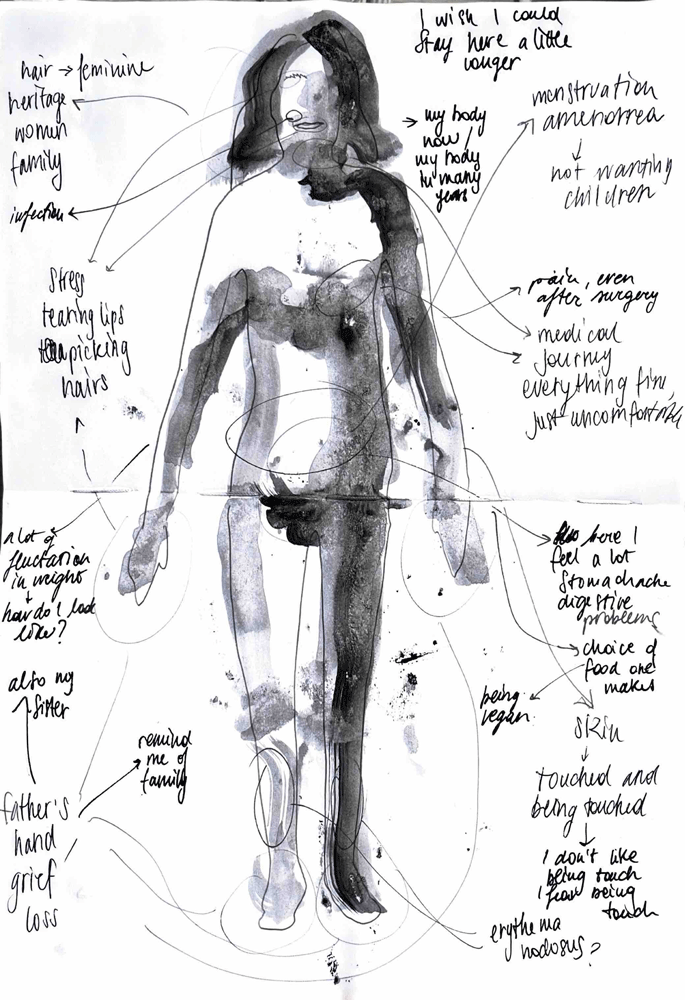 I wish I could
stay here a little
longer
hair → feminine
heritage
women
family
infection
my body
now /
my body
in many
years
menstruation
amenorrea
↓
not wanting
children
stress
tearing lips
picking
hairs
pain, even
after surgery
medical
journy
everything fine,
just uncomfortable
a lot of
fluctation
in weight
↓
how do I look
like?
here I
feel a lot
stomachache
digestive
problems
choice of
food one
makes
being
vegan
skin
↓
touched and
being touched
↓
I don't like
being touch
I fear being
touch
also my
sister
remind
me of
family
father's
hand
grief
loss
erythema
nodosus?